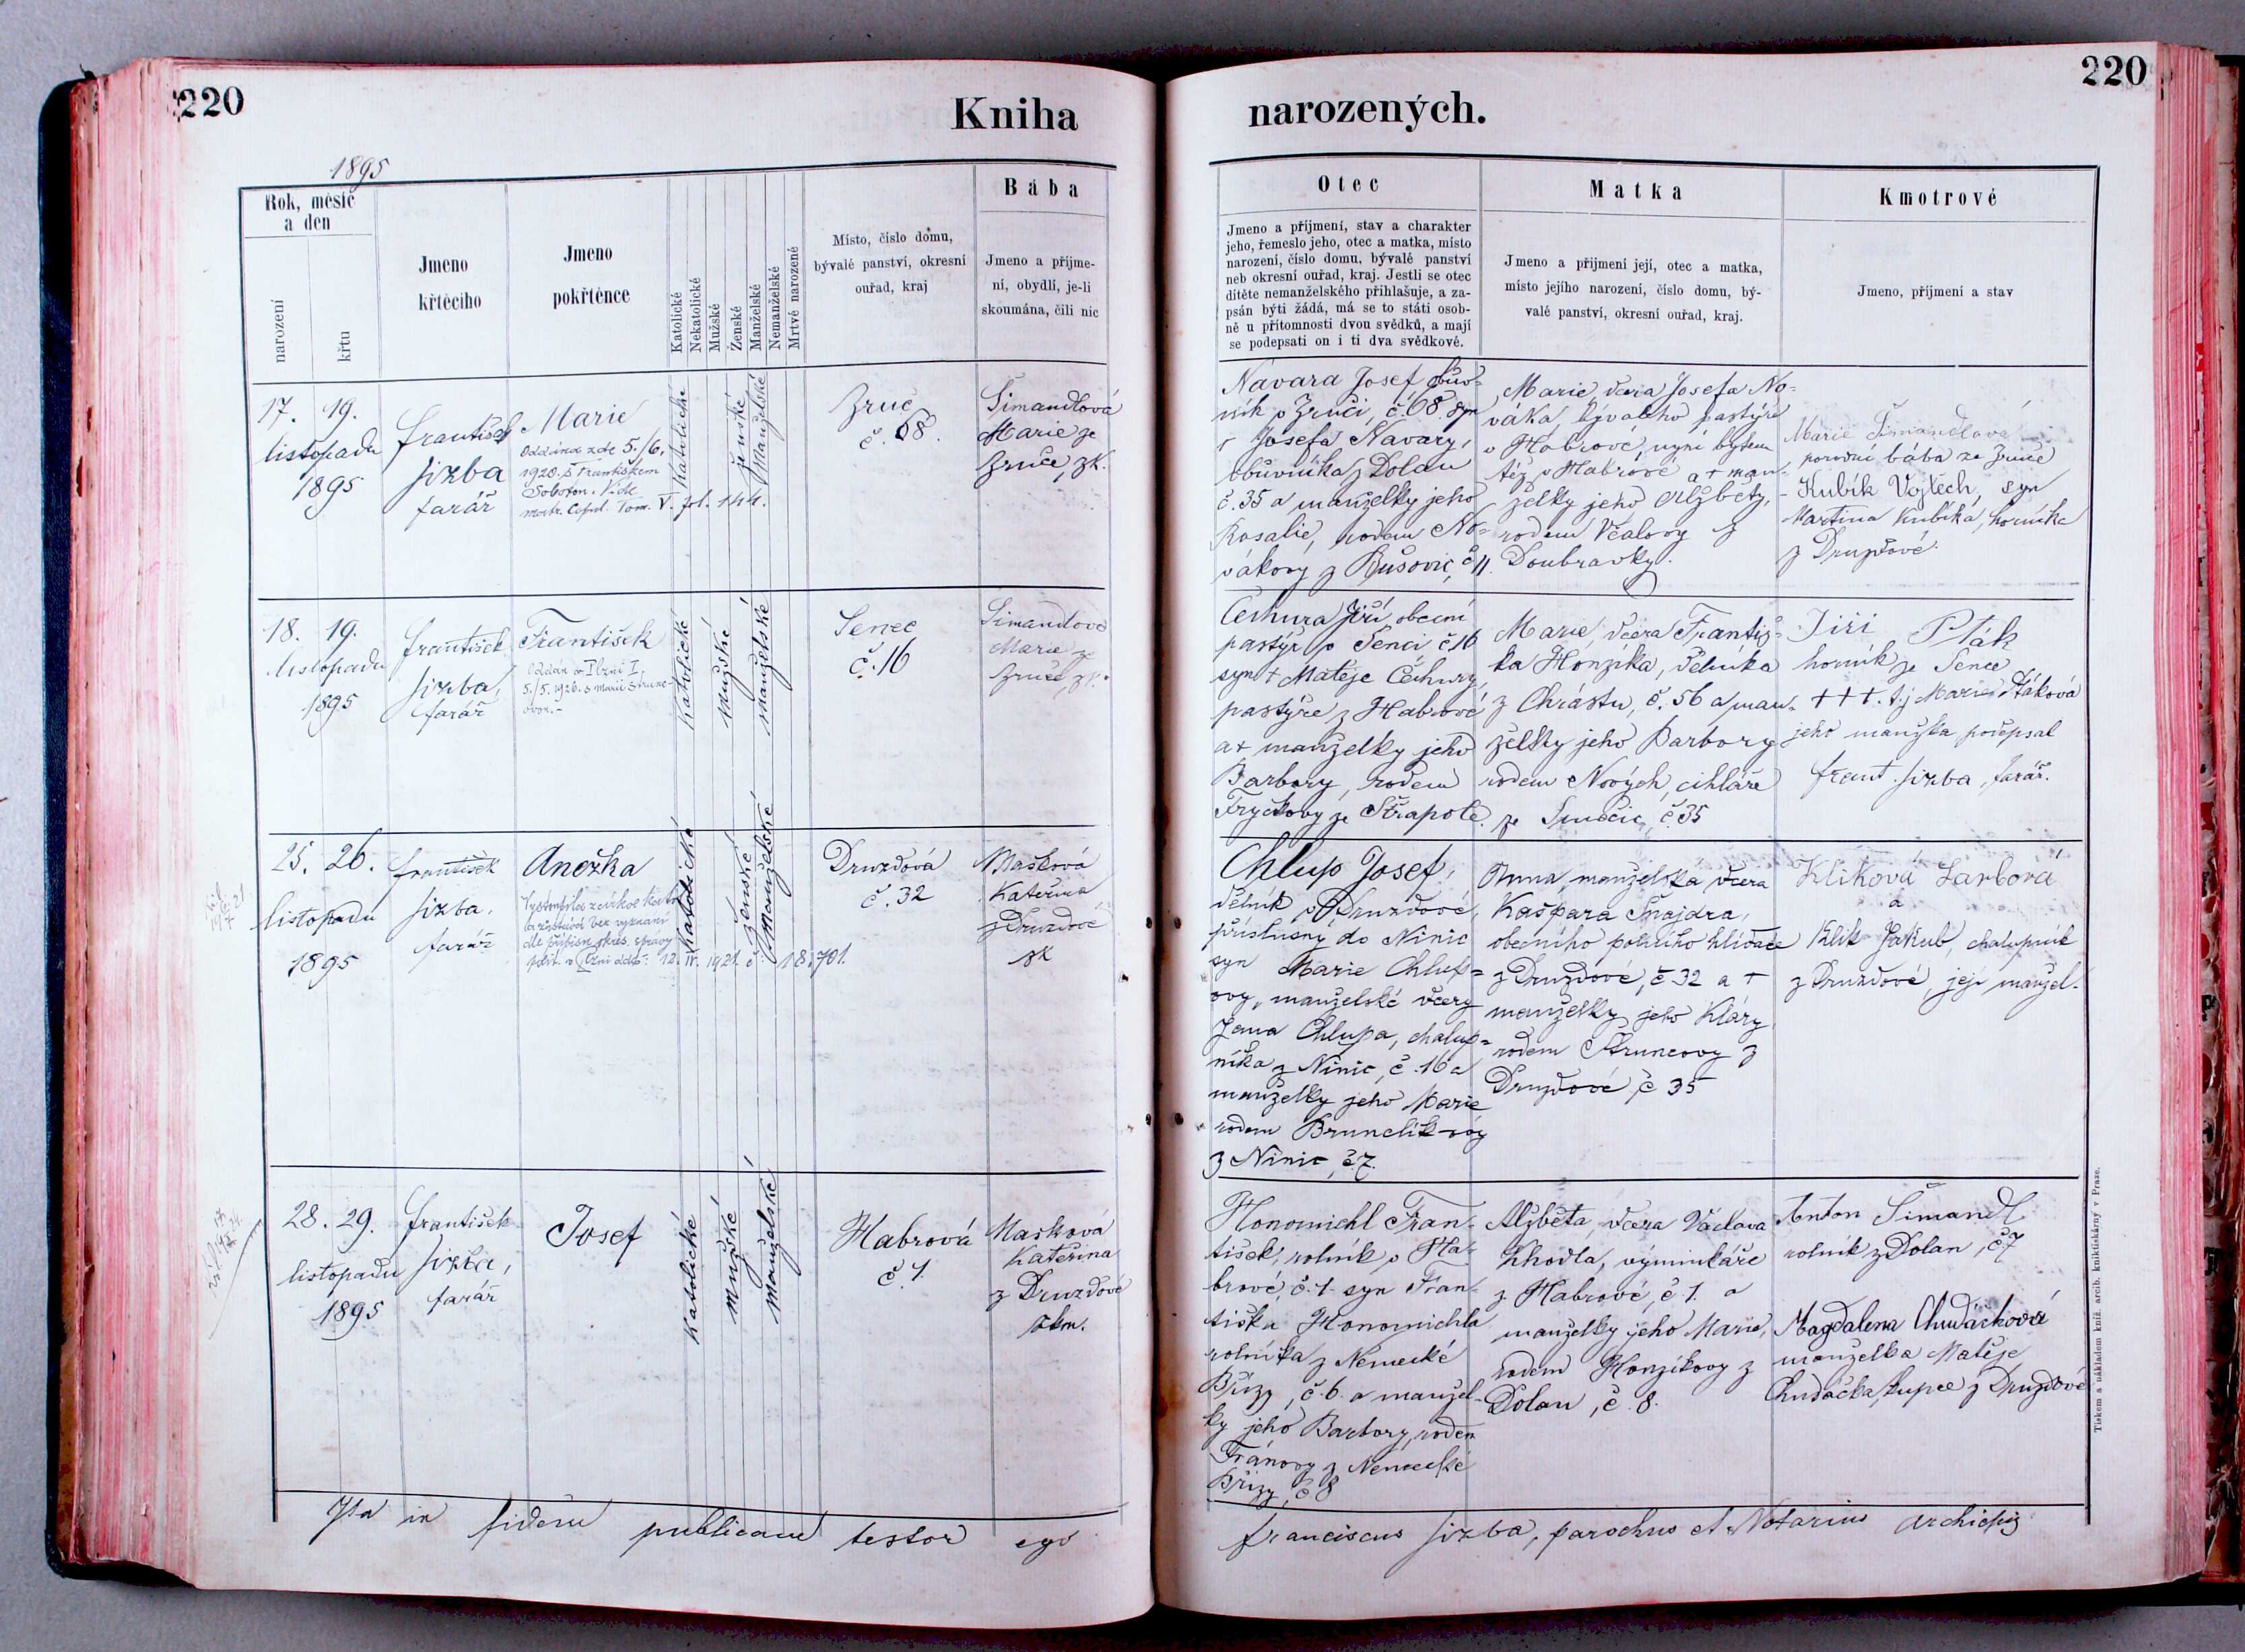 220
Kniha
1895
Rok, měsíc
a den
narození
křtu
Jmeno
křtěcího
Jmeno
pokřtěnce
Katolické
Nekatolické
Mužské
Ženské
Manželské
Nemanželské
Mrtvě narozené
Místo, číslo domu,
bývalé panství, okresní
ouřad, kraj
Bába
Jmeno a příjme-
ní, obydlí, je-li
skoumána, čili nic
17. 19.
listopadu
1895
František
Jizba
farář
Marie
Oddána zde 5./6.
1920. s Františkem
V. fol. 144.
katolické
ženské
manželské
Zruč
č. 68.
Šimandlová
Marie ze
Zruče, zk.
18. 19.
listopadu
1895
František
Jizba,
farář
František
Oddán v Plzni I.
5./5. 1926. s Marií
katolické
mužské
manželské
Senec
č. 16
Šimandlová
Marie ze
Zruče, zk.
25. 26.
listopadu
1895
František
Jizba,
farář
Anežka
Vystoupila z církve kato
bez vyznání
dle přípisu okres. správy
polit. v Plzni ddto: 12. IV. 1921. č. 18.701.
katolické
ženské
manželské
Druzdová
č. 32
Mašková
Kateřina
z Druzdové
zk
28. 29.
listopadu
1895
František
Jizba,
farář
Josef
katolické
mužské
manželské
Habrová
č 1.
Mašková
Kateřina
z Druzdové
zkm.
Ita in fidem publicam testor ego
220
narozených.
Otec
Jmeno a příjmení, stav a charakter
jeho, řemeslo jeho, otec a matka, místo
narození, číslo domu, bývalé panství
neb okresní ouřad, kraj. Jestli se otec
dítěte nemanželského přihlašuje, a za-
psán býti žádá, má se to státi osob-
ně u přítomnosti dvou svědků, a mají
se podepsati on i ti dva svědkové.
Matka
Jmeno a přijmení její, otec a matka,
místo jejího narození, číslo domu, bý-
valé panství, okresní ouřad, kraj.
Kmotrové
Jmeno, příjmení a stav
Navara Josef, obuv=
ník v Zruči, č. 68. syn
+ Josefa Navary,
obuvníka z Dolan
č. 35 a manželky jeho
Rosalie, rodem No=
vákovy z Bušovic, č 11.
Marie, dcera Josefa No=
váka, bývalého pastýře
v Habrové, nyní bytem
též v Habrové a + man-
želky jeho Alžběty,
rodem Včalovy z
Doubravky.
Marie Šimandlová
porodní bába ze Zruče
- Kubík Vojtěch, syn
Martina Kubíka, horníka
z Druzdové.
Čechura Jiří, obecní
pastýř v Senci č. 16
syn + Matěje Čechury,
pastýře z Habrové
a + manželky jeho
Barbory, rodem
Tryčkovy ze Střapole.
Marie, dcera Františ=
ka Honzíka, dělníka
z Chrástu, č. 56 a man-
želky jeho Barbory
rodem Nových, cihláře
ze Smědčic, č. 35
Jiří Pták
horník ze Sence
+++. t.j. Marie Ptáková
jeho manžka podepsal
Frant. Jizba, farář.
Chlup Josef,
dělník v Druzdové,
příslušný do Ninic
syn Marie Chlup=
ovy, manželské dcery
Jana Chlupa, chalup=
níka z Ninic, č. 16 a
manželky jeho Marie
rodem Brunclíkovy
z Ninic, č. 7.
Anna, manželka, dcera
Kašpara Šnajdra,
obecního polního hlídače
z Druzdové, č 32 a +
manželky jeho Kláry,
rodem Štruncovy z
Druzdové, č 35
Kliková Barbora
a
Klik Jakub, chalupník
z Druzdové, její manžel.
Honomichl Fran-
tišek, rolník v Ha-
brové, č. 1. syn Fran-
tiška Honomichla
rolníka z Německé
Břízy, č. 6. a manžel-
ky jeho Barbory, rodem
Fránovy z Německé
Břízy, č 8
Alžběta, dcera Václava
Khodla, výminkáře
z Habrové, č 1. a
manželky jeho Marie,
rodem Honzíkovy z
Dolan, č. 8.
Anton Šimandl
rolník z Dolan, č 7
Magdalena Chudáčková
manželka Matěje
Chudáčka, kupce z Druzdové
Franciscus Jizba, parochus et Notarius archiepis
Tiskem a nákladem kníž. arcib. knihtiskárny v Praze.